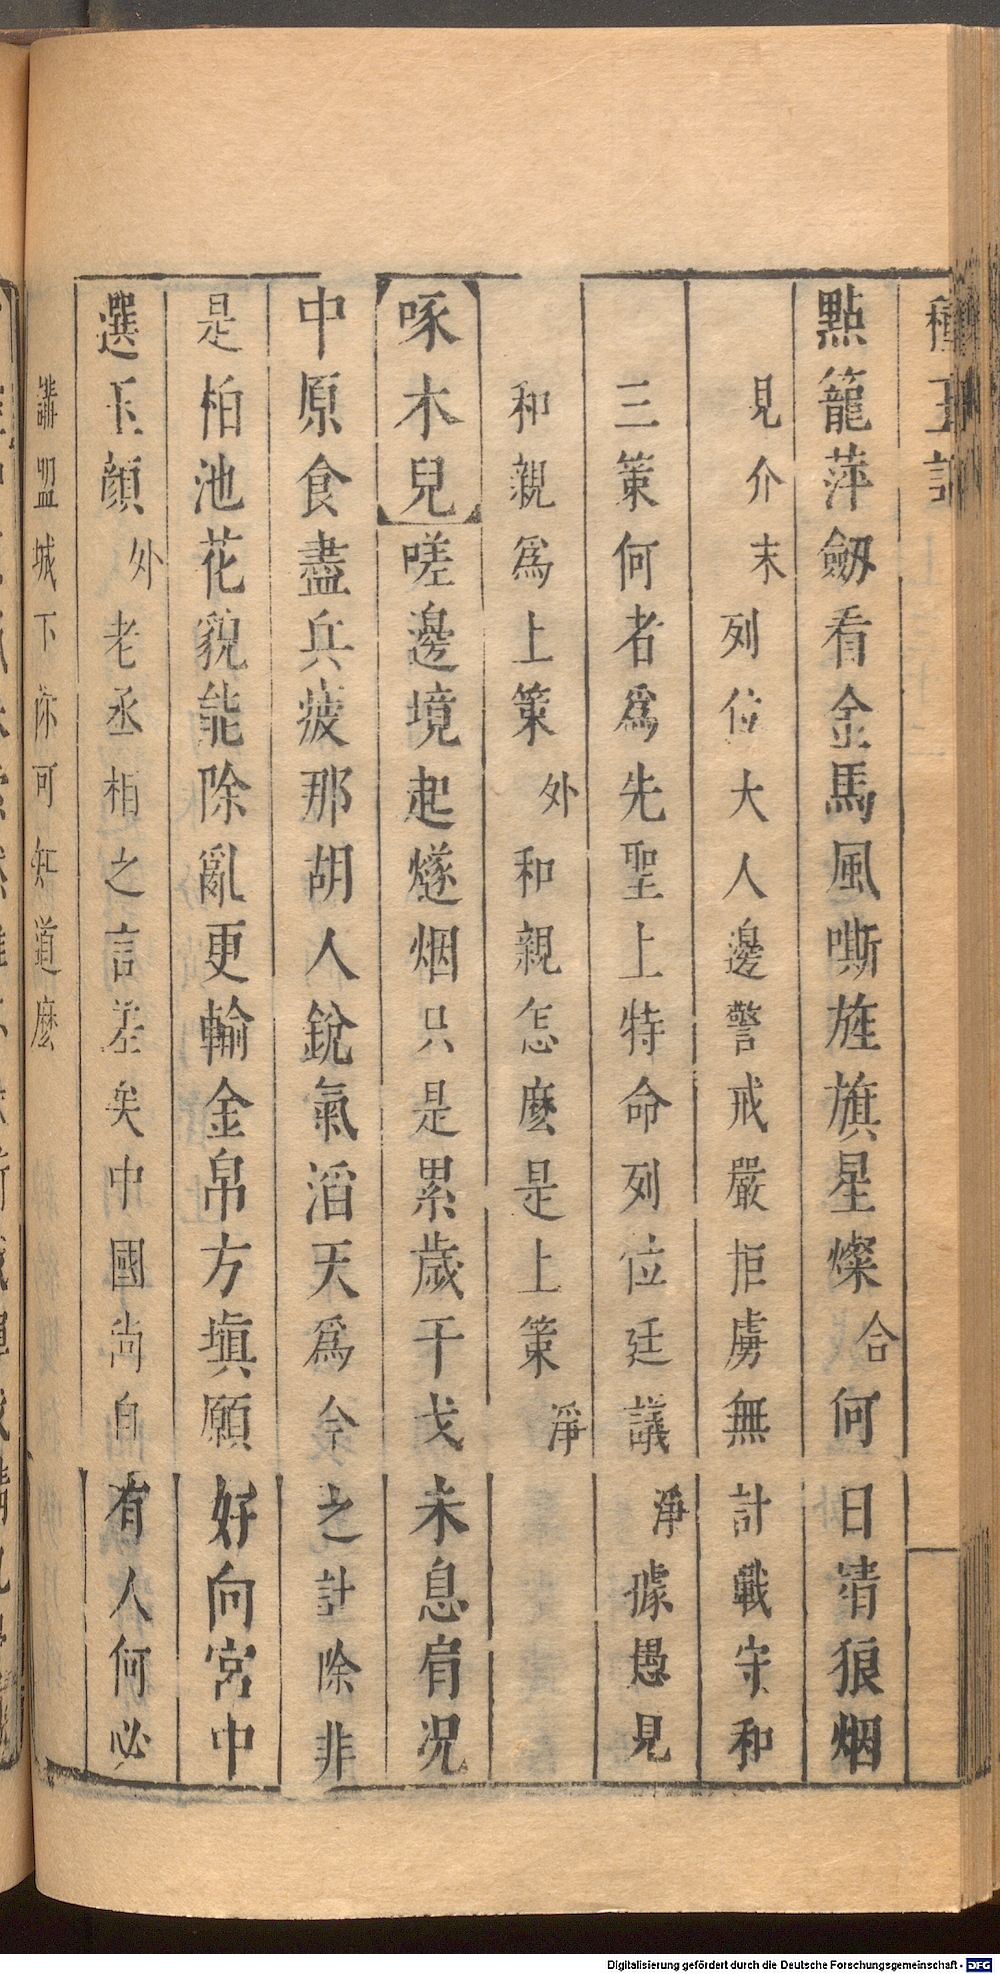 種玉記
點籠萍劒看金馬風嘶旌旗星燦合何日靖狼烟
見介末列位大人邊警戒嚴拒虜無計戰守和
三策何者爲先聖上特命列位廷議淨據愚見
和親爲上策外和親怎麽是上策淨
啄木兒嗟邊境起燧烟只是累歲干戈未息肩况
中原食盡兵疲那胡人銳氣滔天爲今之計除非
是柏池花貌能除亂更輸金帛方塡願好向宮中
選玉顔外老丞相之言差矣中國尚自有人何必
講盟城下你可知道麽
Digitalisierung gefördert durch die Deutsche Forschungsgemeinschaft - DFG